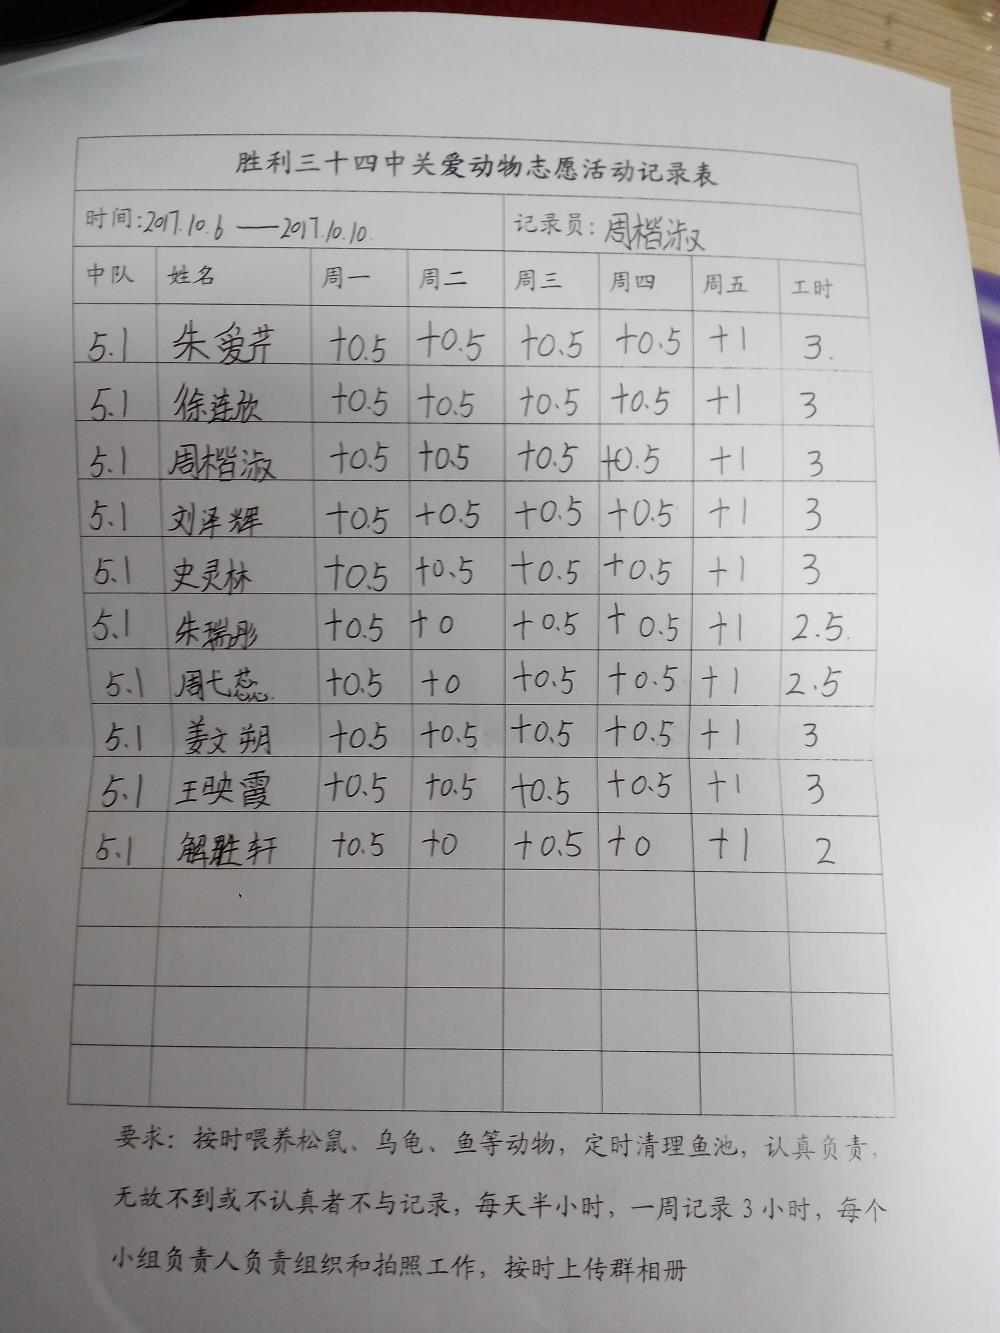 胜利三十四中关爱动物志愿活动记录表
时间:2017.10.6 —— 2017.10.10. 记录员: 周楷淑
中队 姓名 周一 周二 周三 周四 周五 工时
5.1 朱爱芹 +0.5 +0.5 +0.5 +0.5 +1 3.
5.1 徐连欣 +0.5 +0.5 +0.5 +0.5 +1 3
5.1 周楷淑 +0.5 +0.5 +0.5 +0.5 +1 3
5.1 刘泽辉 +0.5 +0.5 +0.5 +0.5 +1 3
5.1 史灵林 +0.5 +0.5 +0.5 +0.5 +1 3
5.1 朱瑞彤 +0.5 +0 +0.5 +0.5 +1 2.5.
5.1 周弋蕊 +0.5 +0 +0.5 +0.5 +1 2.5
5.1 姜文朔 +0.5 +0.5 +0.5 +0.5 +1 3
5.1 王映霞 +0.5 +0.5 +0.5 +0.5 +1 3
5.1 解胜轩 +0.5 +0 +0.5 +0 +1 2
要求：按时喂养松鼠、乌龟、鱼等动物，定时清理鱼池，认真负责，
无故不到或不认真者不与记录，每天半小时，一周记录 3 小时，每个
小组负责人负责组织和拍照工作，按时上传群相册